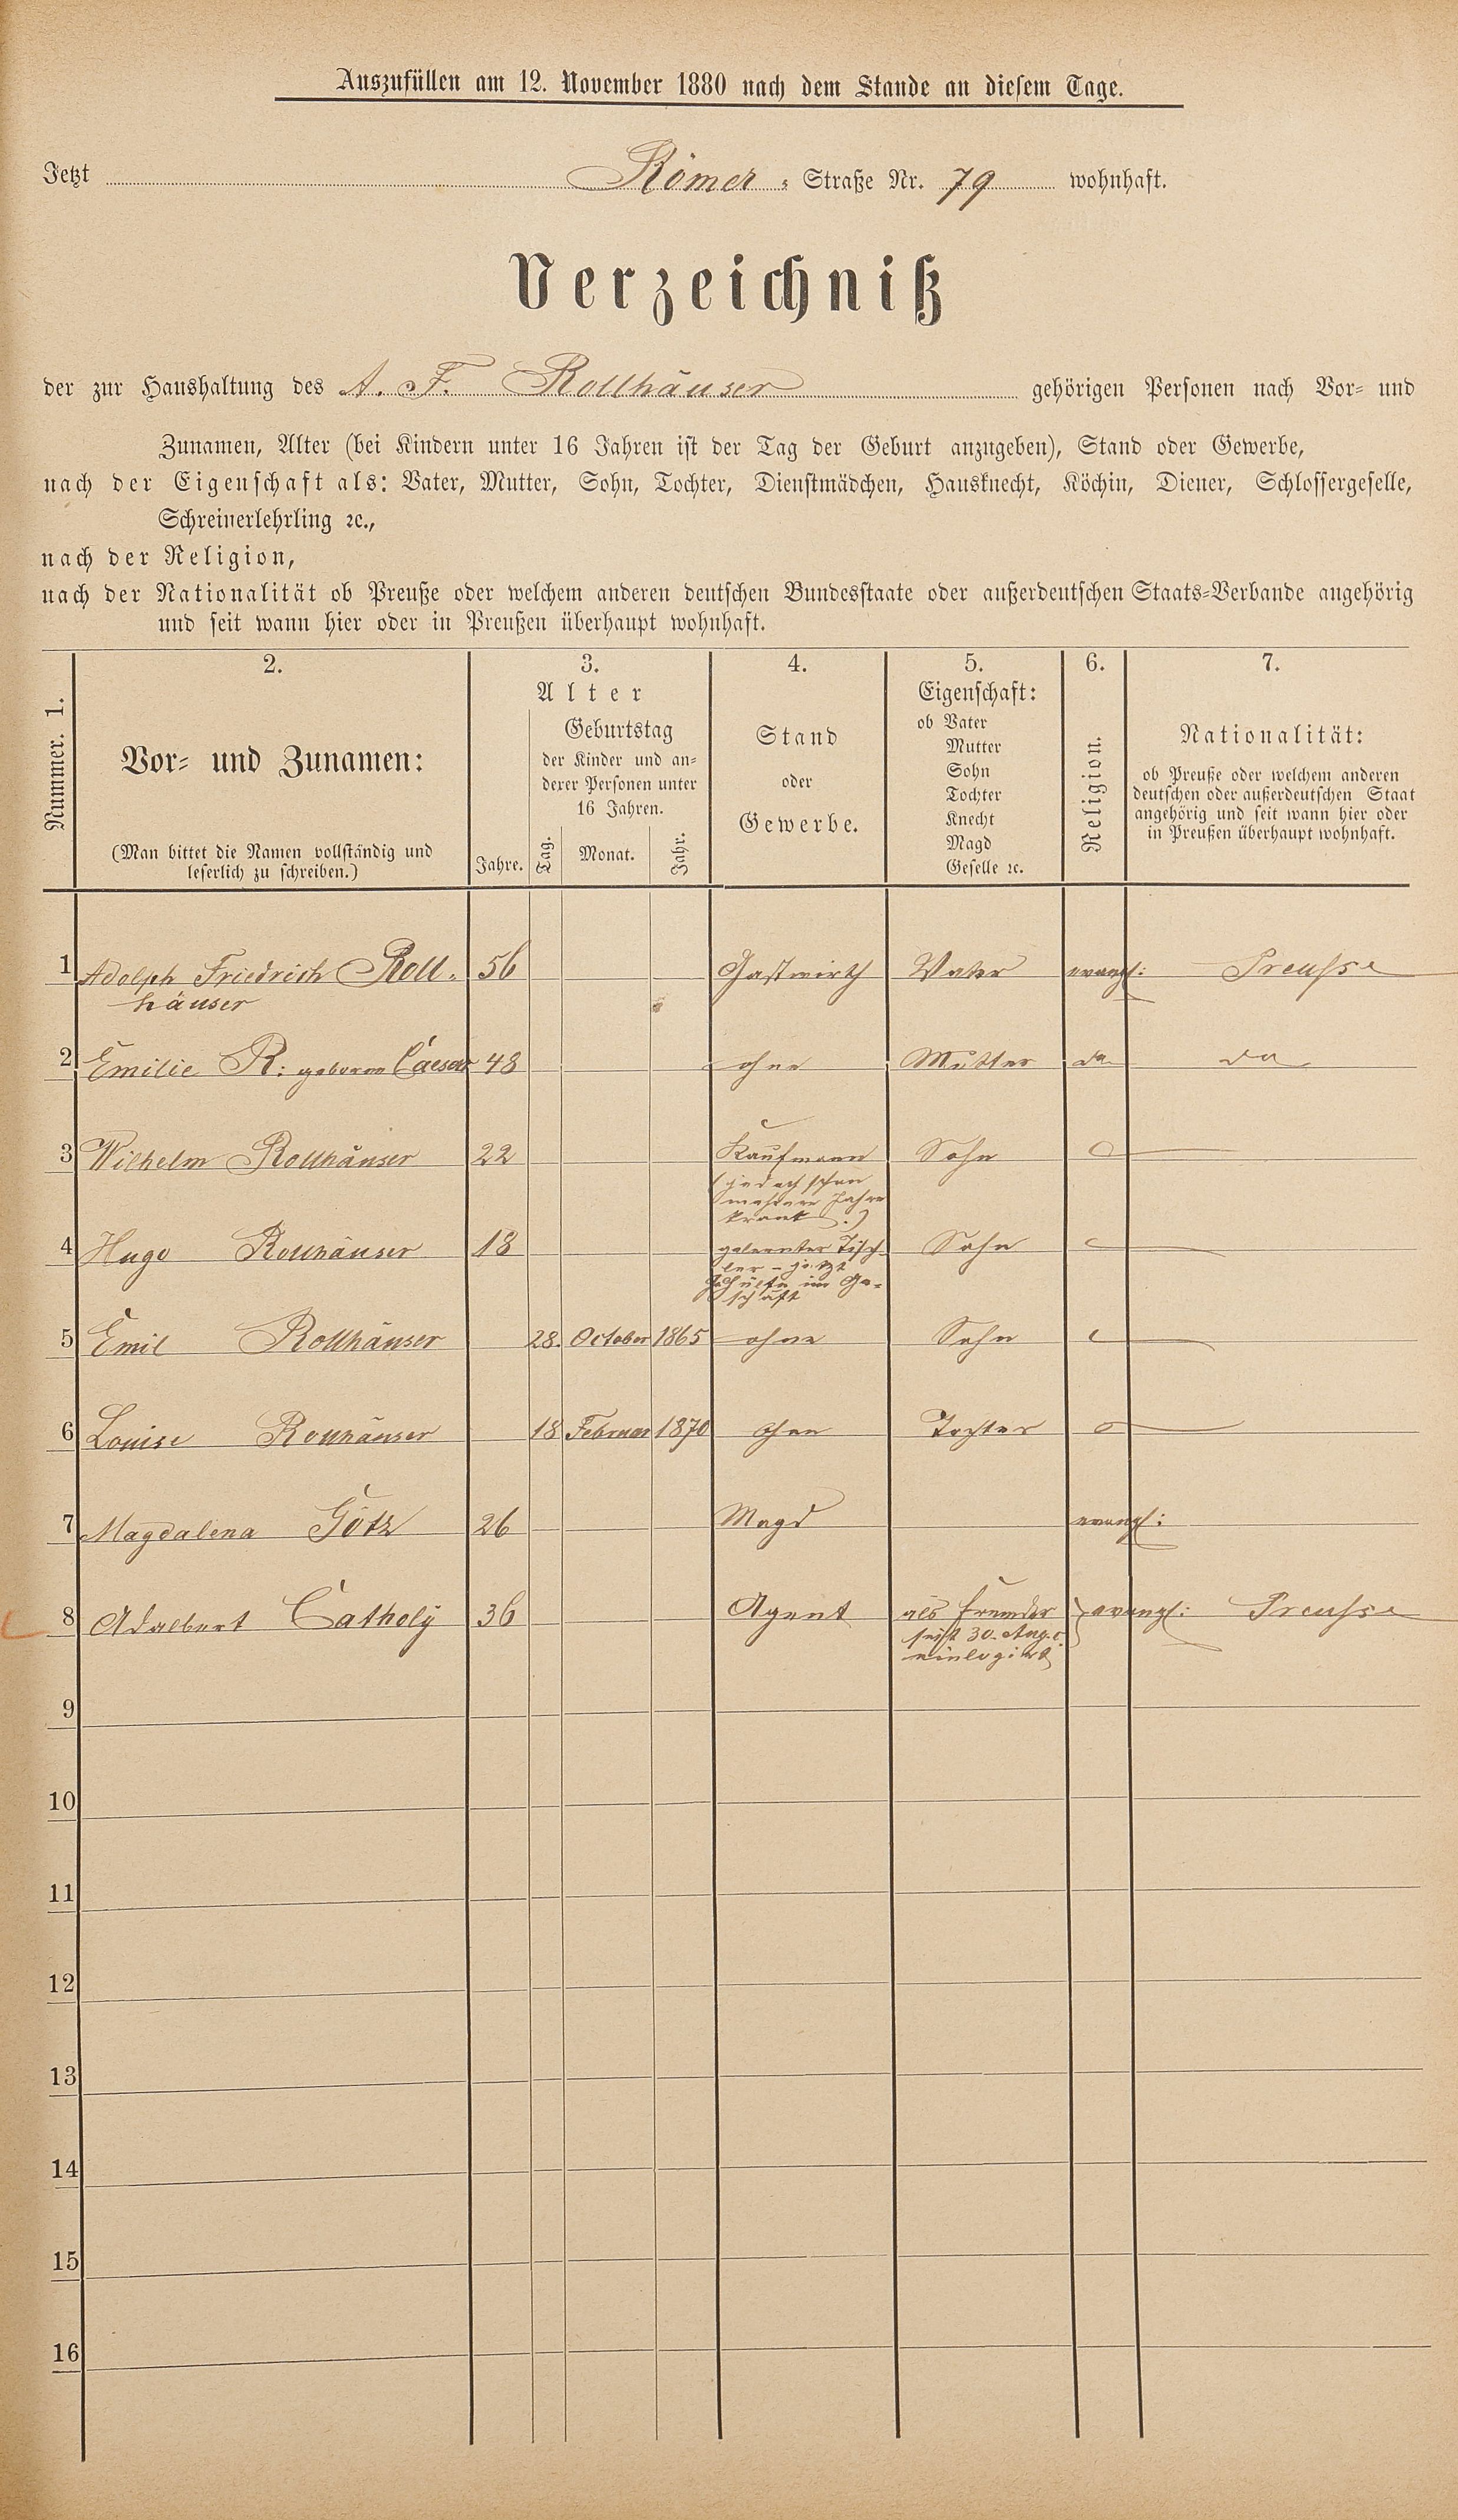 Auszufüllen am 12. November 1880 nach dem Stande an diesem Tage.
Jetzt Römer - Straße Nr. 79 wohnhaft.
Verzeichniß
der zur Haushaltung des A. F. Rollhäuser gehörigen Personen nach Vor- und
Zunamen, Alter (bei Kindern unter 16 Jahren ist der Tag der Geburt anzugeben), Stand oder Gewerbe,
nach der Eigenschaft als: Vater, Mutter, Sohn, Tochter, Dienstmädchen, Hausknecht, Köchin, Diener, Schlossergeselle,
Schreinerlehrling ꝛc.,
nach der Religion,
nach der Nationalität ob Preuße oder welchem anderen deutschen Bundesstaate oder außerdeutschen Staats-Verbande angehörig
und seit wann hier oder in Preußen überhaupt wohnhaft.
Nummer. 1.
2.
Vor- und Zunamen:
(Man bittet die Namen vollständig und
leserlich zu schreiben.)
3.
Alter
Jahre.
Geburtstag
der Kinder und an-
derer Personen unter
16 Jahren.
Tag. Monat. Jahr.
4.
Stand
oder
Gewerbe.
5.
Eigenschaft:
ob Vater
Mutter
Sohn
Tochter
Knecht
Magd
Geselle ꝛc.
6.
Religion.
7.
Nationalität:
ob Preuße oder welchem anderen
deutschen oder außerdeutschen Staat
angehörig und seit wann hier oder
in Preußen überhaupt wohnhaft.
1 Adolph Friedrich Roll- 56 Gastwirth Vater evangl: Preusse
häuser
2 Emilie R: geborene Caesar 48 ohne Mutter do do
3 Wilhelm Rollhäuser 22 Kaufmann Sohn
(jedoch schon
mehrere Jahre
krank.)
4 Hugo Rollhäuser 18 gelernter Tisch- Sohn
ler - jetzt
Gehülfe im Ge-
schäft
5 Emil Rollhäuser 28. October 1865 ohne Sohn
6 Louise Rollhäuser 18 Februar 1870 ohne Tochter
7 Magdalena Götz 26 Magd evangl:
8 Adalbert Catholy 36 Agent als Fremder evangl: Preusse
seit 30. Aug. c.
einlogirt
9
10
11
12
13
14
15
16